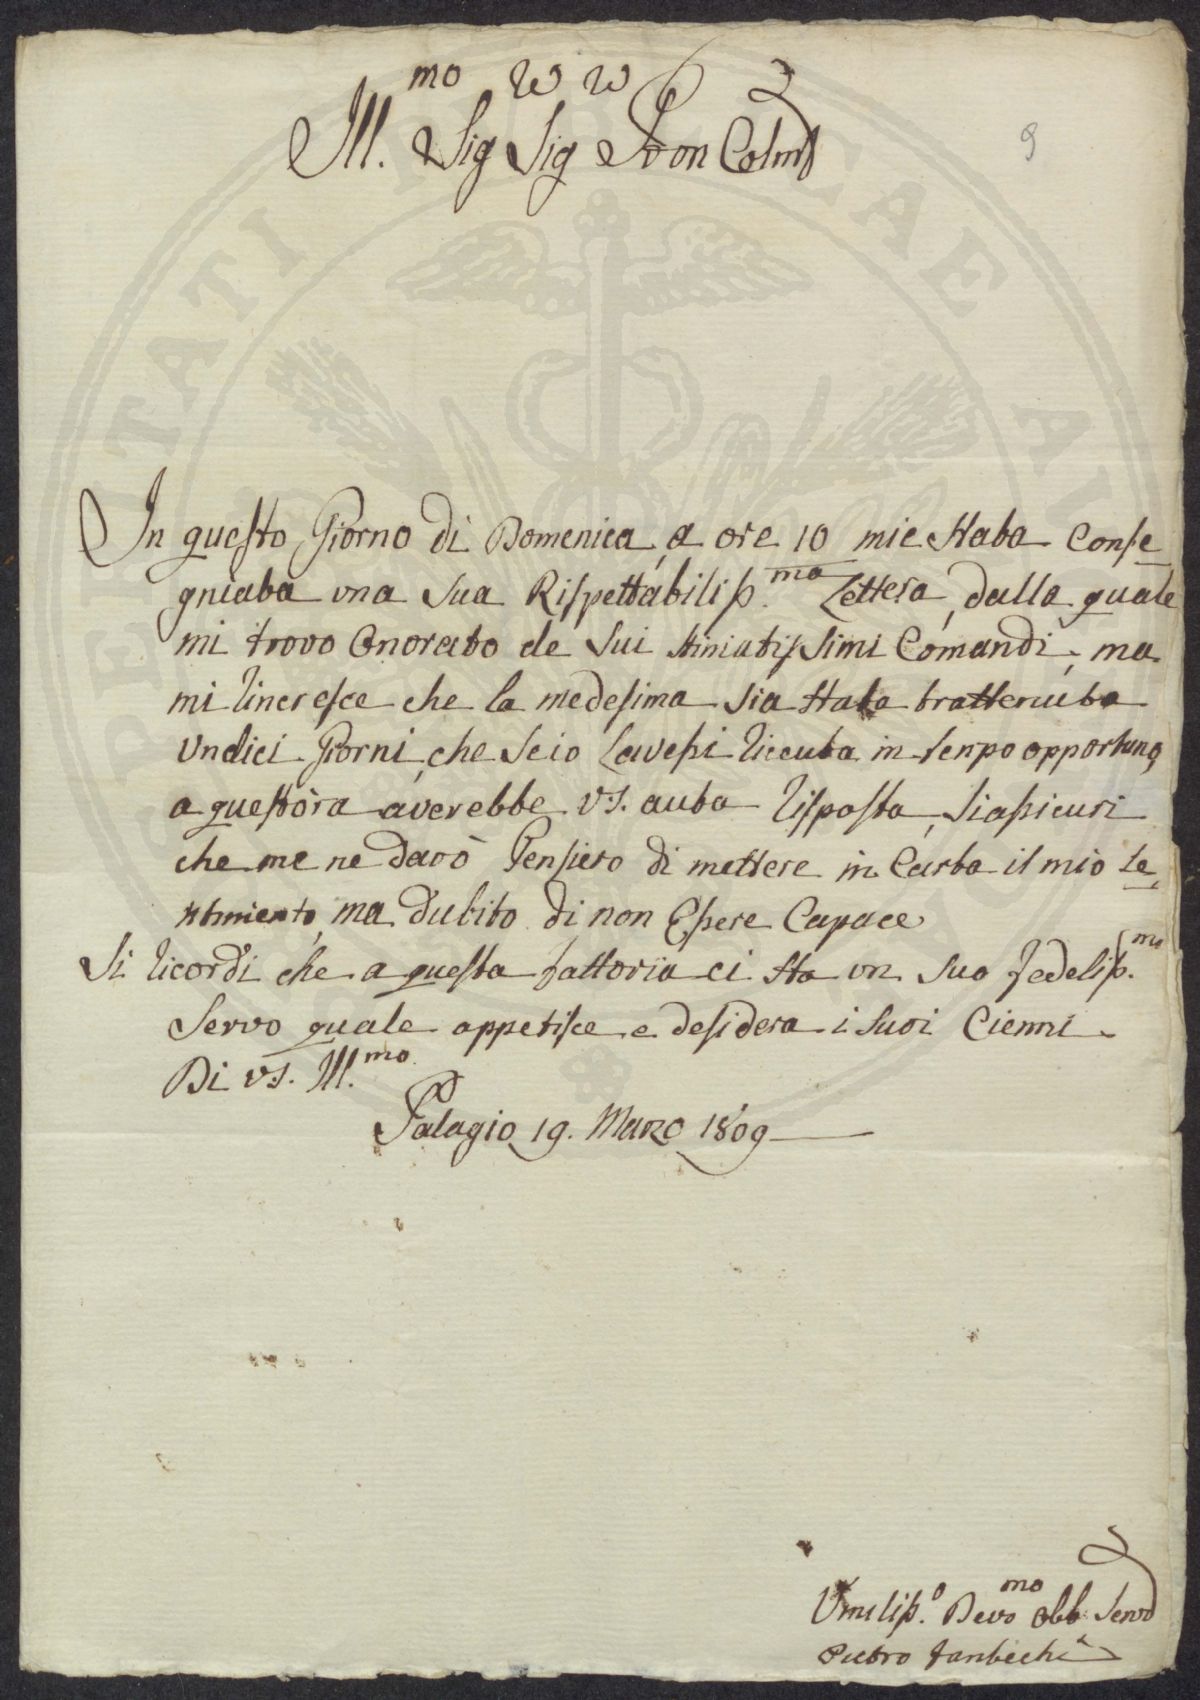 Ill.mo Sig.re Sig.re Pron Colmo
9
In questo Giorno di Domenica, a ore 10 mie stata Conse
gniata una Sua Rispettabilissma Lettera, dalla quale
mi trovo Onorato de Sui stimatissimi Comandi, ma
mi rincresce che la medesima sia stata trattenuta
Undici Giorni, che se io Lavessi riceuta in tenpo opportuno,
a quest'ora averebbe V.S. auta risposta, siassicuri
che me ne darò Pensiero di mettere in Carta il mio se
ntimiento, ma dubito di non Essere Capace
Si ricordi che a questa fattoria ci sta un suo fedeliss.mo
Servo quale appetisce e desidera i suoi Cienni
Di V.S. Ill.mo
Palagio 19. Marzo 1809
Umiliss.o Devmo Obb Servo
Pietro Fanbechi